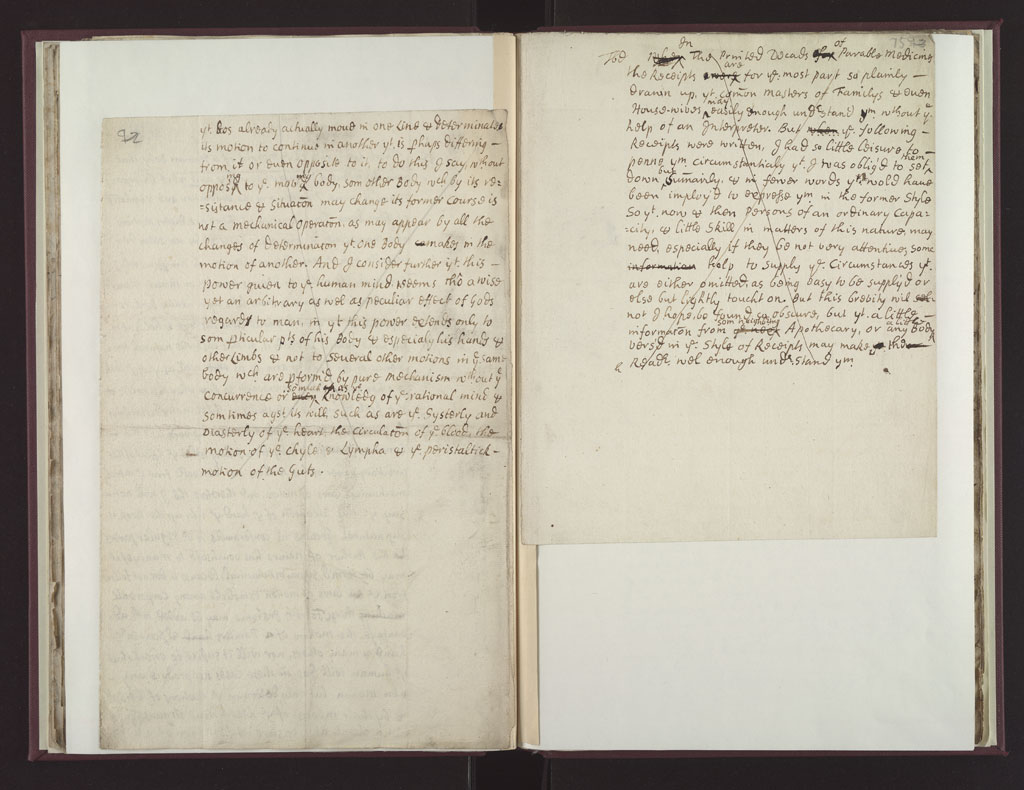 92
yt. dos already actually move in one Line & determinates
its motion to continue in another yt. is phaps differing —
from it or even opposite to it, to do this I say, wthout
body, som other Body wch by its re-
=sistance & Situacõn may change its former Course is
not a mechanical Operatōn. as may appear by all the
changes of determinatōn yt. one Body makes in the
motion of another. And I consider further yt. this —
power given to ye. human mind seems thô a wise
yet an arbitrary as wel as peculiar effect of Gods
regard to man, in yt this power extends only to
som pticular pts of his Body & especialy his hands &
other Limbs & not to several other motions in ye. same
body wch. are pformd by pure mechanism wthout ye
somtimes as
concurrence or even knowledg of ye. rational mind &
somtimes agst. its will, such as are ye. Systerly and
Diasterly of ye. heart the circulatōn of ye. blood, the
motion of ye. chyle & Lympha & ye. peristaltick —
motion of the Guts.
In of
The Printed Decads Parable Medicins
are
the Receipts were for ye. most part so plainly —
drawn up, yt. com̄on masters of Familys & even
may
House-wives easily enough undrstand ym without ye
help of an Interpreter. But when ye. following —
Receipts were written, I had so little leisure to —
them
penne ym. circumstantialy yt. I was oblig'd to set
but
down sum̄arily, & in fewer words yn. wold have
been imploy'd to expresse ym. in the former Style
So yt. now & then persons of an ordinary Capa-
-city, & little Skill in matters of this nature, may
need, especially if they be not very attentive, some
information help to supply ye. Circumstances yt.
are either omitted, as being easy to be supply'd or
else but lightly touch't on. But this brevity wil
not I hope, be found so obscure, but yt. a little —
som neighboring a little
informatōn from Apothecary, or any Body
vers'd in ye. Style of Receipts may make
Readr. wel enough undrstand ym